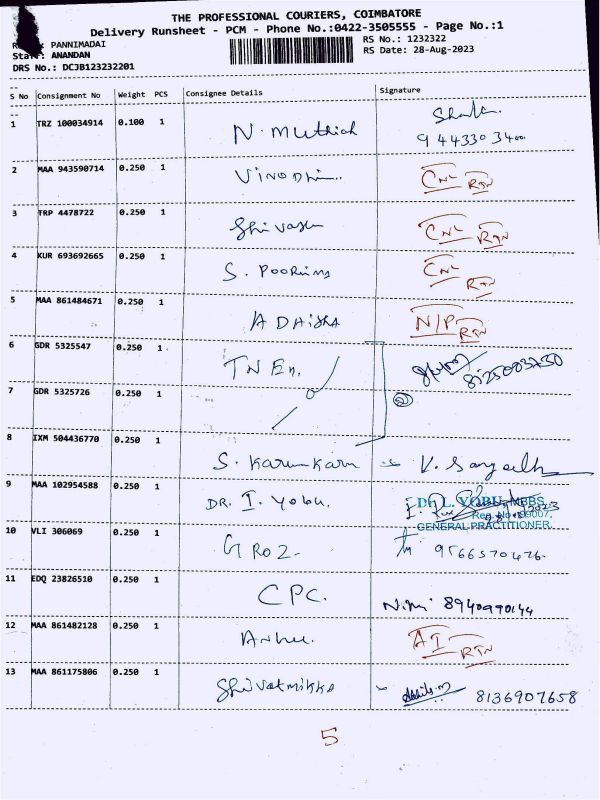 THE PROFESSIONAL COURIERS, COIMBATORE
Delivery Runsheet - PCM - Phone No.:0422-3505555 - Page No.:1
PANNIMADAI
RS No.: 1232322
Staff: ANANDAN
RS Date: 28-Aug-2023
DRS No.: DCJB123232201
S No Consignment No Weight PCS Consignee Details Signature
1 TRZ 100034914 0.100 1 N. Muthiah
2 MAA 943590714 0.250 1 Vinodhini CNL RTN
3 TRP 4478722 0.250 1 CNL RTN
4 KUR 693692665 0.250 1 S. Poorima CNL RTN
5 MAA 861484671 0.250 1 N/P RTN
6 GDR 5325547 0.250 1 TN En. 8125003250
7 GDR 5325726 0.250 1
8 IXM 504436770 0.250 1 S.
9 MAA 102954588 0.250 1 DR. I. Yobu. Dr. I. YOBU, MBBS,
GENERAL PRACTITIONER
10 VLI 306069 0.250 1 9566570476
11 EDQ 23826510 0.250 1 CPC. 8940990144
12 MAA 861482128 0.250 1 AI RTN
13 MAA 861175806 0.250 1 Shivatmikka 8136907658
5